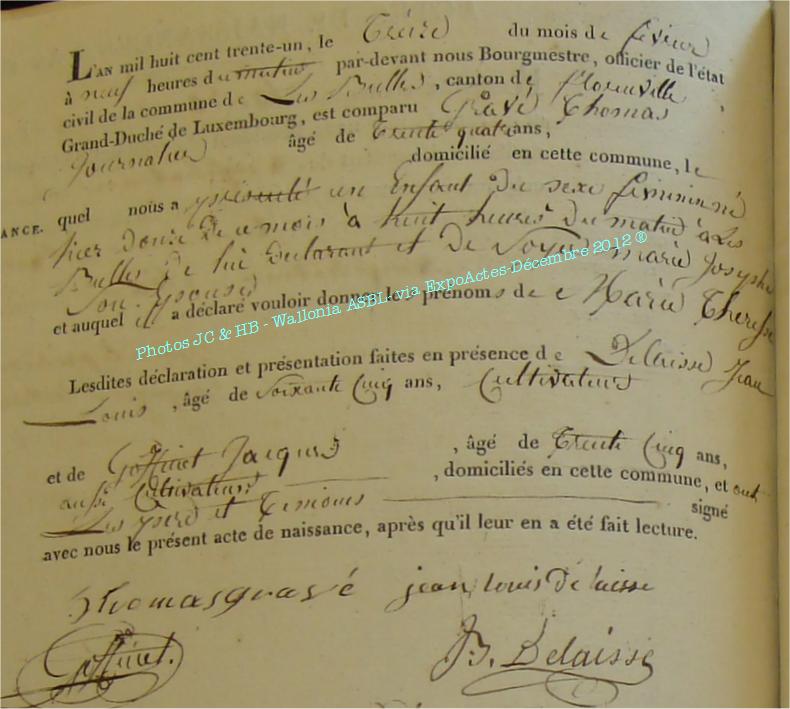 L'AN mil huit cent trente-un, le Treize du mois de février
à neuf heures du matin par-devant nous Bourgmestre, officier de l'état
civil de la commune de Les Bulles, canton de florenville,
Grand-Duché de Luxembourg, est comparu Gravé Thomas
Journalier âgé de trente quatre ans,
domicilié en cette commune, le
ANCE. quel nous a présenté un Enfant du sexe féminin né
hier douze de ce mois à huit heures du matin à Les
Bulles de lui declarant et de marie Josephe
Son épouse
et auquel il a déclaré vouloir donner les prénoms de Marie Therese
Photos JC & HB - Wallonia ASBL-via ExpoActes-Décembre 2012 ®
Lesdites déclaration et présentation faites en présence de Delaisse Jean
Louis, âgé de Soixante Cinq ans, Cultivateur
et de Goffinet Jacques, âgé de Trente Cinq ans,
aussi Cultivateur, domiciliés en cette commune, et ont
Les père et Temoins signé
avec nous le présent acte de naissance, après qu'il leur en a été fait lecture.
Thomas gravé jean louis de laisse
Goffinet. B. Delaisse